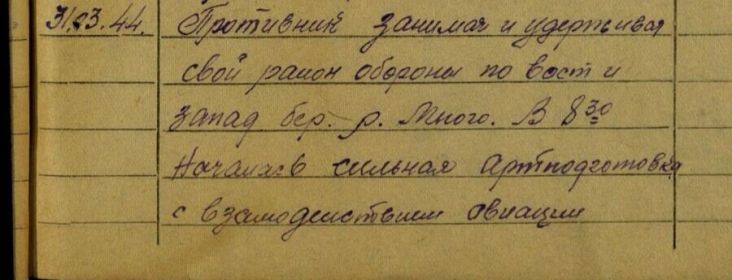 31.03.44. Противник занимая и удерживая
свой район обороны по вост и
запад бер. р. Много. В 8 30
Началась сильная артподготовка
с взамодействием авиации